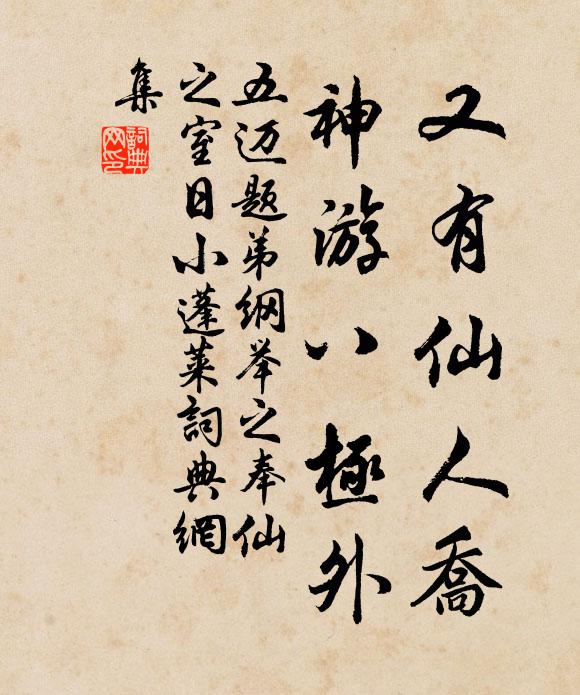 又有仙人喬
神游八極外
五迈题弟纲举之奉仙
之室日小蓬莱詞典網
集
詞典
网印